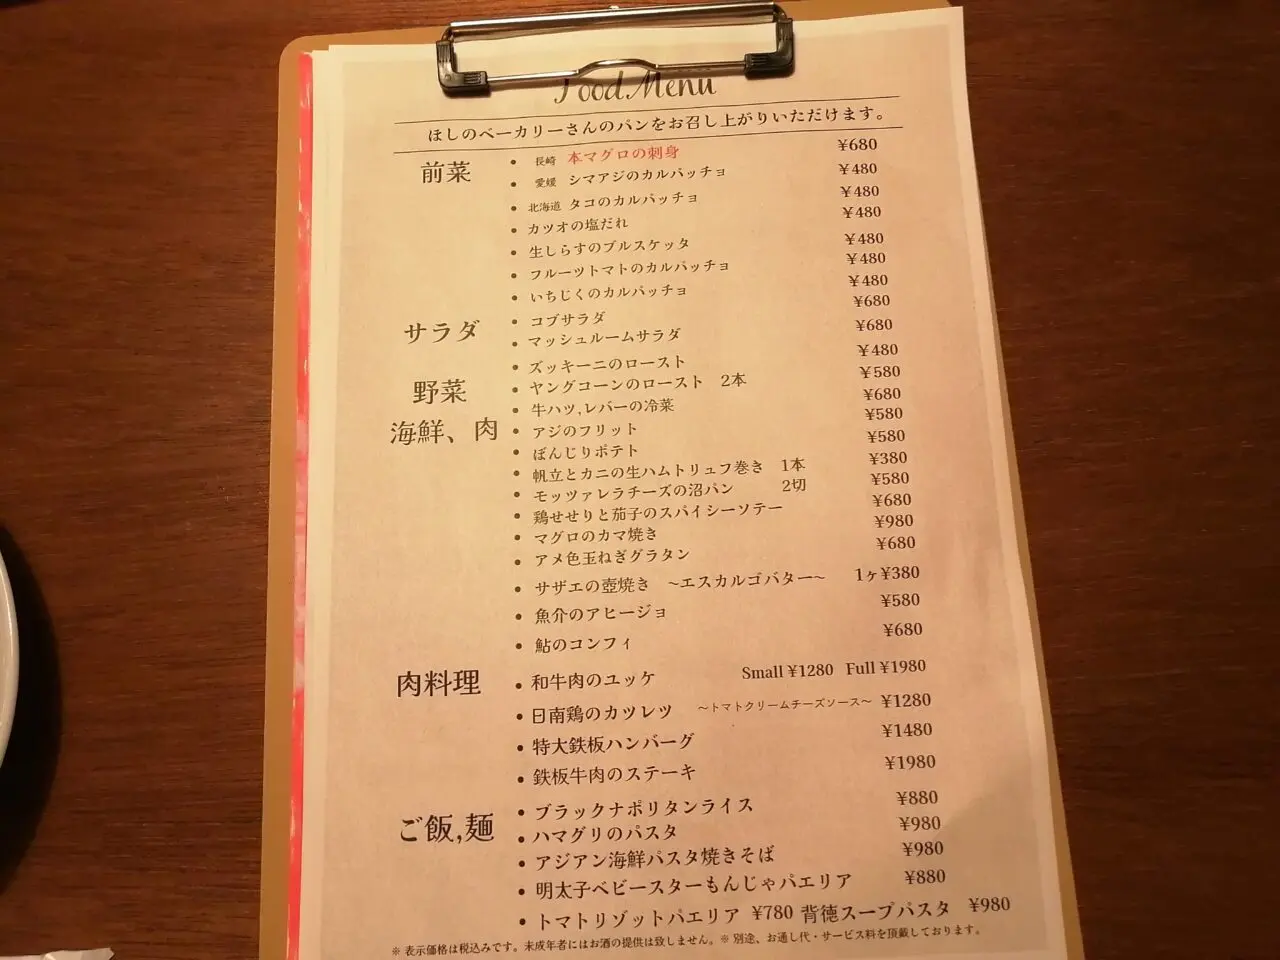 Food Menu
ほしのベーカリーさんのパンをお召し上がりいただけます。
前菜
長崎 本マグロの刺身 ¥680
愛媛 シマアジのカルパッチョ ¥480
北海道 タコのカルパッチョ ¥480
カツオの塩だれ ¥480
生しらすのブルスケッタ ¥480
フルーツトマトのカルパッチョ ¥480
いちじくのカルパッチョ ¥480
サラダ
コブサラダ ¥680
マッシュルームサラダ ¥680
野菜
ズッキーニのロースト ¥480
ヤングコーンのロースト 2本 ¥580
海鮮、肉
牛ハツ,レバーの冷菜 ¥680
アジのフリット ¥580
ぼんじりポテト ¥580
帆立とカニの生ハムトリュフ巻き 1本 ¥380
モッツァレラチーズの沼パン 2切 ¥580
鶏せせりと茄子のスパイシーソテー ¥680
マグロのカマ焼き ¥980
アメ色玉ねぎグラタン ¥680
サザエの壺焼き ~エスカルゴバター~ 1ヶ¥380
魚介のアヒージョ ¥580
鮎のコンフィ ¥680
肉料理
和牛肉のユッケ Small ¥1280 Full ¥1980
日南鶏のカツレツ ~トマトクリームチーズソース~ ¥1280
特大鉄板ハンバーグ ¥1480
鉄板牛肉のステーキ ¥1980
ご飯,麺
ブラックナポリタンライス ¥880
ハマグリのパスタ ¥980
アジアン海鮮パスタ焼きそば ¥980
明太子ベビースターもんじゃパエリア ¥880
トマトリゾットパエリア ¥780 背徳スープパスタ ¥980
※ 表示価格は税込みです。未成年者にはお酒の提供は致しません。※ 別途、お通し代・サービス料を頂戴しております。